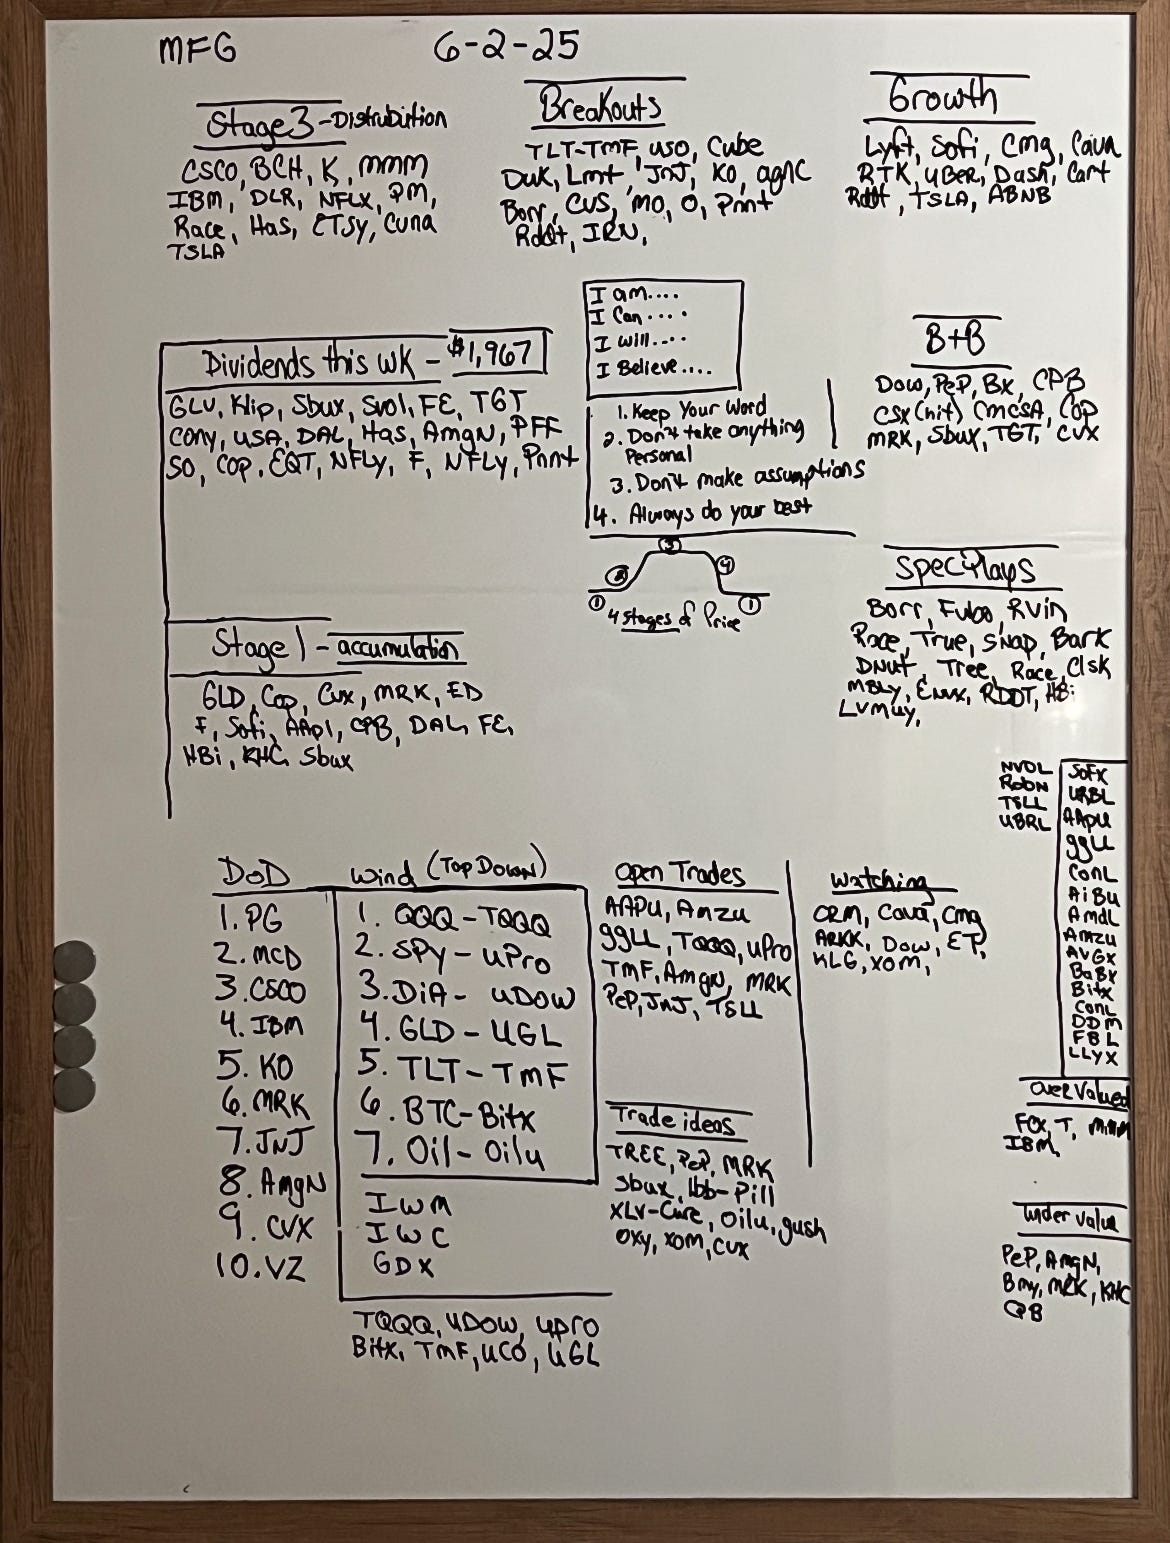 MFG 6-2-25
Stage 3 - Distrubution
CSCO, BCH, K, mmm
IBM, DLR, NFLX, PM,
Race, Has, ETSy, Cuna
TSLA
Breakouts
TLT-TMF, USO, Cube
Duk, Lmt, JnJ, KO, agnC
Borr, CVS, MO, O, Pmnt
Rddt, IRN,
Growth
Lyft, Sofi, Cmg, Cava
RTK, UBER, Dash, Cart
Rddt, TSLA, ABNB
Dividends this wk - $1,967
GLU, Klip, Sbux, Svol, FE, TGT
Cony, USA, DAL, Has, AmgN, PFF
SO, COP, EQT, NFLY, F, NFLY, Pmnt
I am....
I Can....
I will....
I Believe....
1. Keep Your Word
2. Don't take anything
Personal
3. Don't make assumptions
4. Always do your best
① ② ③ ④ ①
4 stages of Price
B+B
Dow, PeP, Bx, CPB
CSX (hit) CmcSA, COP
MRK, Sbux, TGT, CVX
Spec Plays
Borr, Fubo, Rvin
Race, True, Snap, Bark
DNut, Tree, Race, Clsk
MBLY, Envx, RDDT, HBi
Lvmuy,
Stage 1 - accumulation
GLD, Cop, Cvx, MRK, ED
F, Sofi, AApl, CPB, DAL, FE,
HBi, KHC, Sbux
NVDL
RobN
TSLL
UBRL
SoFX
URBL
AAPU
ggLL
ConL
AiBu
Amdl
Amzu
AVGX
BaBX
Bitx
Conl
DDM
FBL
LLyx
DoD
1. PG
2. MCD
3. CSCO
4. IBM
5. KO
6. MRK
7. JNJ
8. AmgN
9. CVX
10. VZ
Wind (Top Down)
1. QQQ - TQQQ
2. SPy - UPro
3. DiA - UDOW
4. GLD - UGL
5. TLT - TMF
6. BTC - Bitx
7. Oil - Oilu
IWM
IWC
GDX
TQQQ, UDOW, UPro
Bitx, TMF, UCO, UGL
Open Trades
AAPU, Amzu
ggLL, TQQQ, UPro
TMF, AmgN, MRK
PeP, JnJ, TSLL
Watching
CRM, Cava, Cmg
ARKK, Dow, ET,
KLG, XOM,
Trade ideas
TREE, PeP, MRK
Sbux, Ibb-Pill
XLV-Cure, Oilu, gush
OXY, XOM, CVX
Over Valued
FOX, T, MMM
IBM,
under value
PeP, AmgN,
Bmy, MRK, KHC
CPB